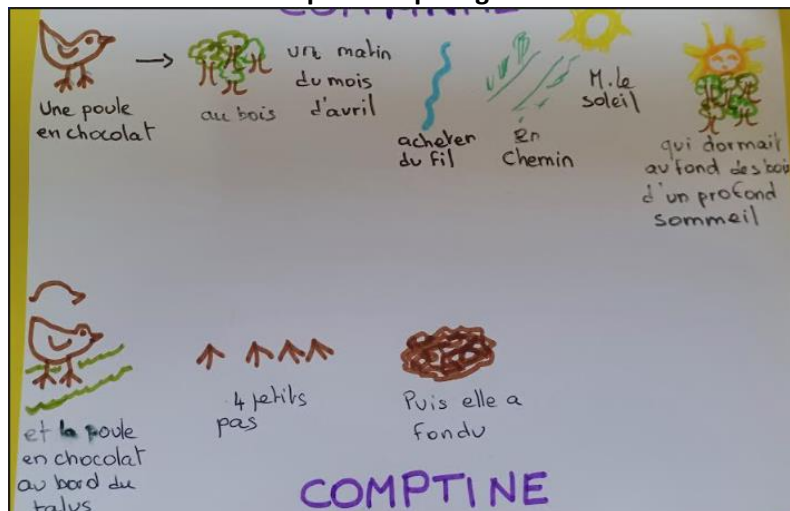 COMPTINE
Une poule
en chocolat
au bois
un matin
du mois
d'avril
acheter
du fil
En
chemin
M. le
soleil
qui dormait
au fond des bois
d'un profond
sommeil
et la poule
en chocolat
au bord du
talus
4 petits
pas
Puis elle a
fondu
COMPTINE